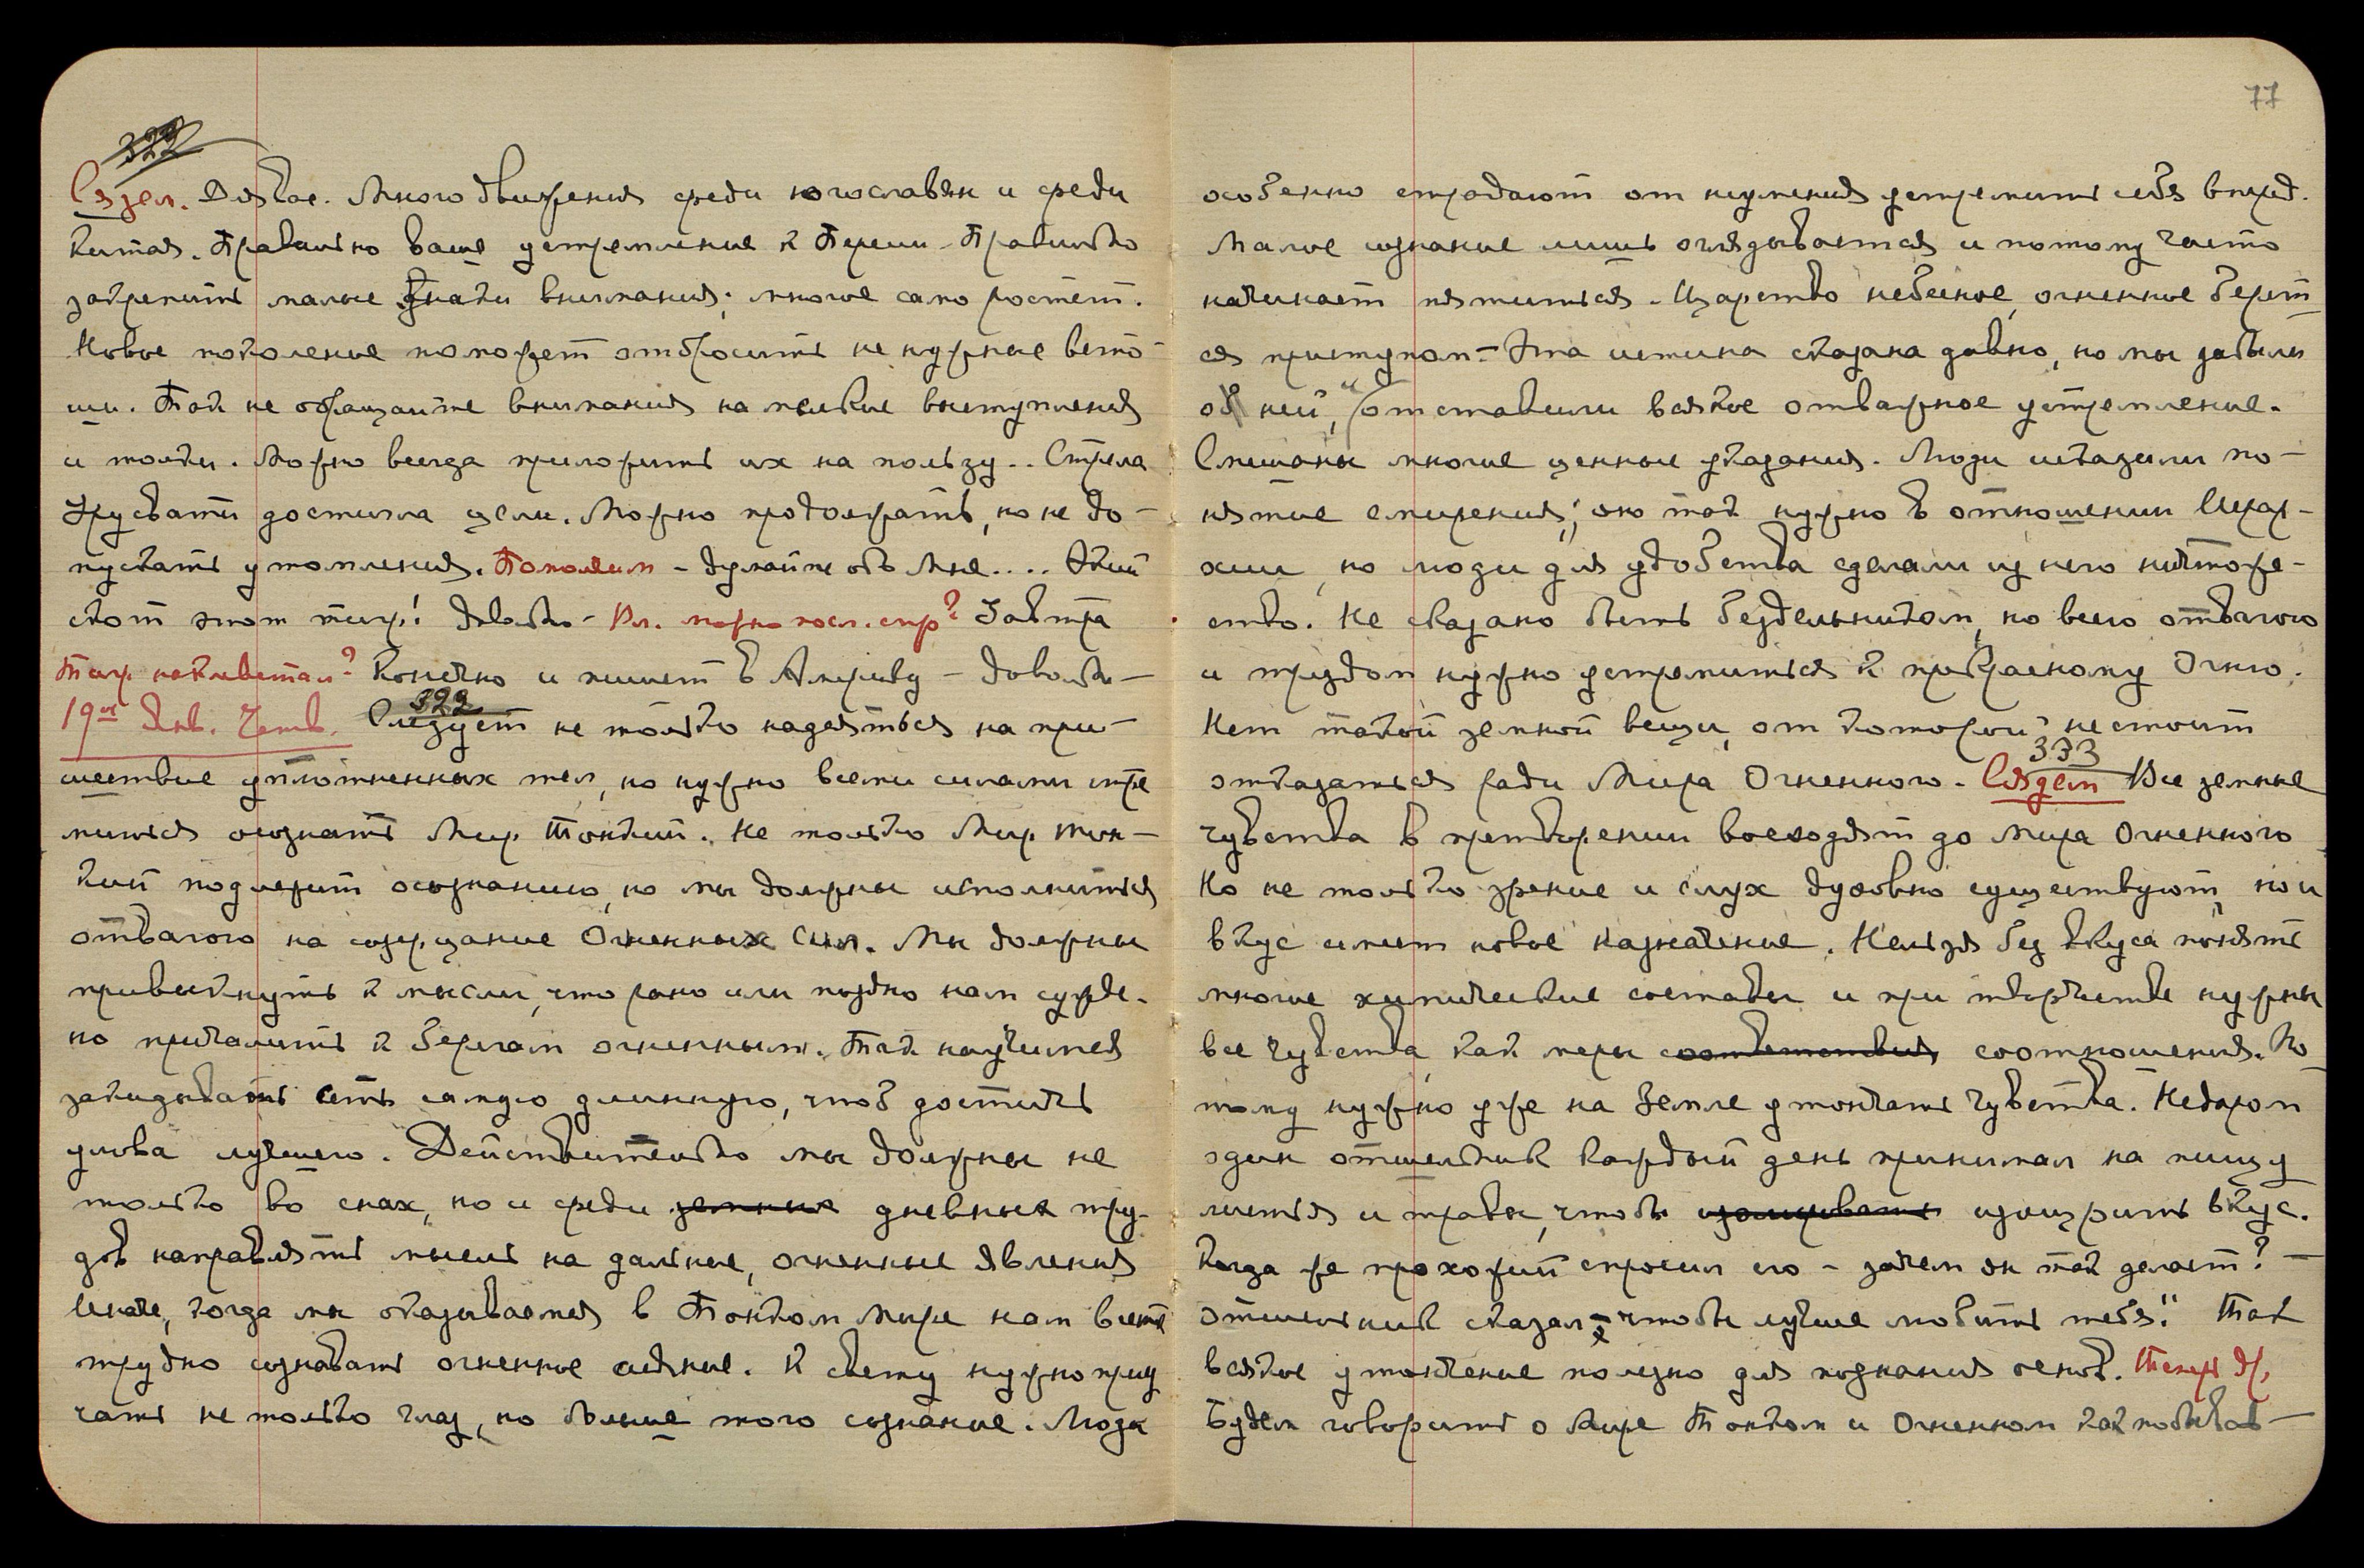 322
Сядем. Довольно. Много движения среди югославян и среди
Китая. Правильно ваше устремление к Персии – Правильно
закрепить малые знаки внимания; многое само ростет.
Новое поколение поможет отбросить не нужные вето-
ши. Так не обращайте внимания на мелкие выступления
и толки. Можно всегда приложить их на пользу.. Стрела
Урусвати достигла цели. Можно продолжать, но не до-
пускать утомления. Помолчим – думайте обо Мне....
скот этот тигр! Довольно – Вл. можно посл. стр? Завтра
Тигр наклеветал? Конечно и пишет в Америку – Довольно –
19ое Янв. Четв. 322 Следует не только надеяться на при-
шествие уплотненных тел, но нужно всеми силами стре
миться осознать Мир Тонкий. Не только Мир Тон-
кий подлежит осознанию, но мы должны исполниться
отвагою на созерцание Огненных Сил. Мы должны
привыкнуть к мысли, что рано или поздно нам сужде-
но причалить к берегам огненным. Так научимся
закидывать сеть самую длинную, чтоб достичь
улова лучшего. Действительно мы должны не
только во снах, но и среди земных дневных тру-
дов направлять мысль на дальные, огненные явления
Иначе, когда мы оказываемся в Тонком Мире нам всегда
трудно сознавать огненное сияние. К свету нужно приу
чать не только глаз, но больше того сознание. Люди
77
особенно страдают от неумения устремить себя вперед.
Малое сознание лишь оглядывается и потому часто
начинает пятиться. Царство небесное, огненное берет
ся приступом – Эта истина сказана давно, но мы забыли
об ней, и отставили всякое отважное устремление.
Смешаны многие ценные указания. Люди исказили по-
нятие смирения; оно так нужно в отношении Иерар-
хии, но люди для удобства сделали из него ничтоже-
ство. Не сказано быть бездельником, но всею отвагою
и трудом нужно устремиться к прекрасному Огню.
Нет такой земной вещи, от которой не стоит
отказаться ради Мира Огненного. – Сядем 333 Все земные
чувства в претворении восходят до Мира Огненного
Но не только зрение и слух духовно существуют, но и
вкус имеет новое назначение. Нельзя без вкуса понять
многие химические составы и при творчестве нужны
все чувства, как меры соответствия соотношения. По
тому нужно уже на Земле утончать чувства. Недаром
один отшельник каждый день принимал на пищу
листья и травы, чтобы изощрить вкус.
Когда же прохожий спросил его – зачем он так делает? –
отшельник сказал – "чтобы лучше любить тебя". Так
всякое утончение полезно для познания основ. Теперь др.
Будем говорить о Мире Тонком и Огненном как